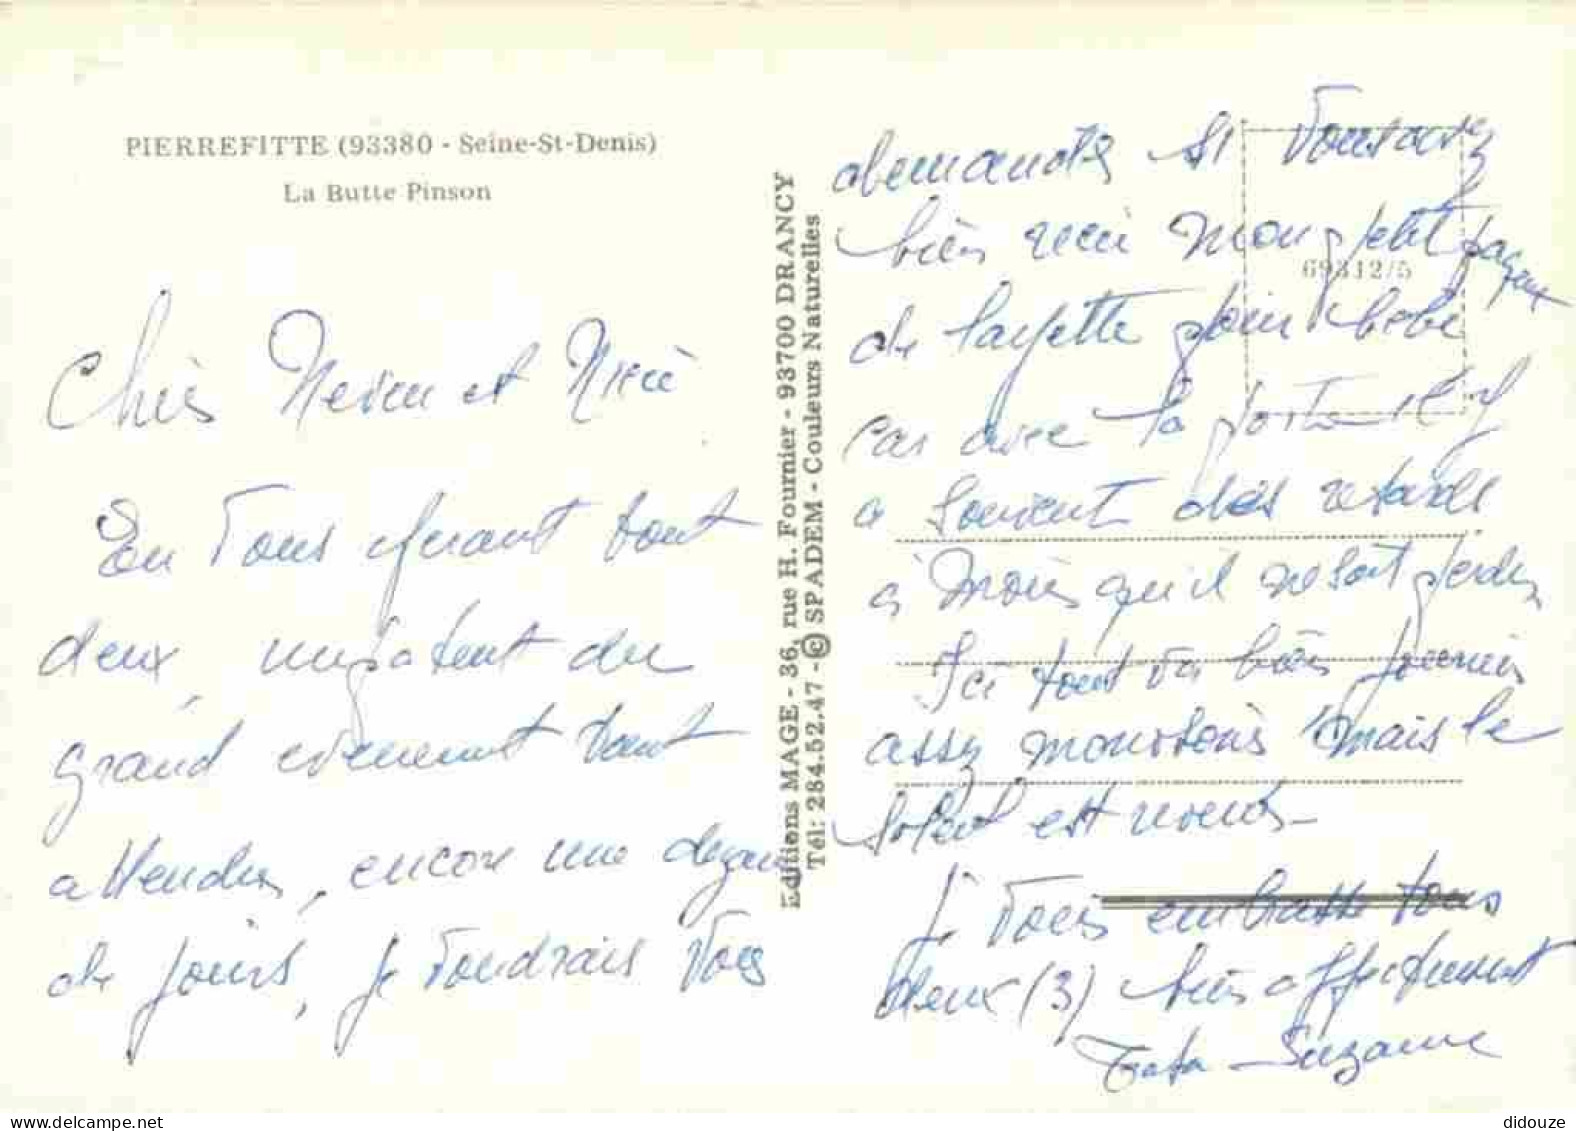 PIERREFITTE (93380 - Seine-St-Denis)
La Butte Pinson
Chers Neveu et Nièce
En vous sachant tout
deux, impatient du
grand evenement tant
attendu, encore une dizaine
de jours, je voudrais vous
Editions MAGE - 36, rue H. Fournier - 93700 DRANCY
Tél: 284.52.47 - © SPADEM - Couleurs Naturelles
69312/5
demander si vous avez
bien recu mon petit paquet
de layette pour bébé
car avec la poste il y
a souvent des retards
à moins qu'il ne soit perdu
Ici tout va bien
assez monotone mais le
soleil est
Je vous embrasse tous
deux (3) bien affectueusement
Tata Suzanne
www.delcampe.net
didouze